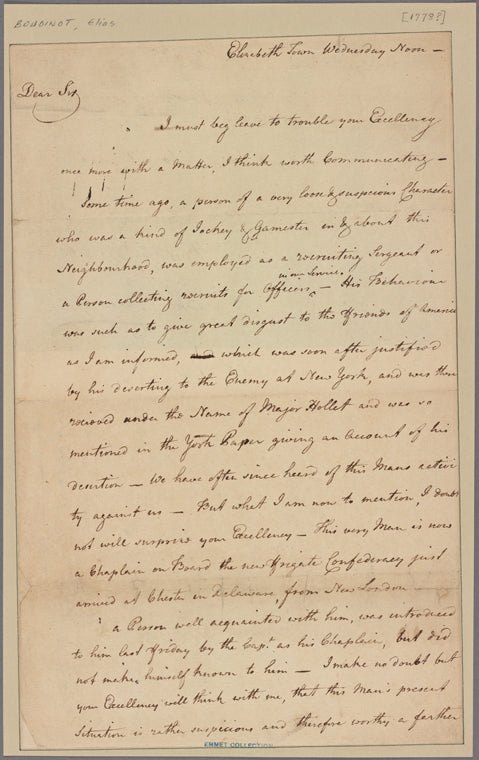 BOUDINOT, Elias [1778?]
Elizabeth Town Wednesday Noon —
Dear Sir
I must beg leave to trouble your Excellency
once more with a Matter, I think worth Communicating —
Some time ago, a person of a very loose & suspicious Character
who was a kind of Jockey & Gamester in & about this
Neighbourhood, was employed as a recruiting Sergeant or
in our Service
a Person collecting recruits for Officers — His Behaviour
was such as to give great disgust to the Friends of America
as I am informed, and which was soon after justified
by his deserting to the Enemy at New York, and was there
recieved under the Name of Major Hollet and was so
mentioned in the York Paper giving an Account of his
desertion — We have often since heard of this Mans activi
ty against us — But what I am now to mention, I doubt
not will surprize your Excellency — This very Man is now
a Chaplain on Board the new Frigate Confederacy just
arrived at Chester in Delaware, from New London —
a Person well acquainted with him, was introduced
to him last Friday by the Capt. as his Chaplain, but did
not make himself known to him — I make no doubt but
your Excellency will think with me, that this Man's present
Situation is rather suspicious and therefore worthy a farther
EMMET COLLECTION